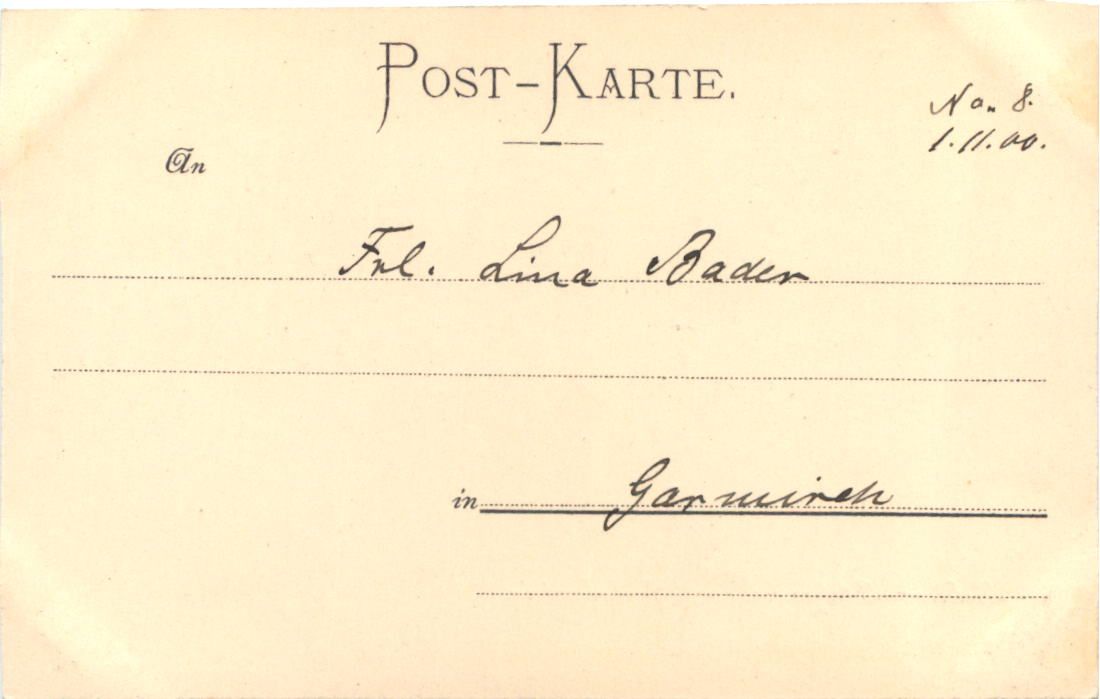 POST-KARTE.
No. 8.
1.11.00.
An
Frl. Lina Bader
in Garmisch